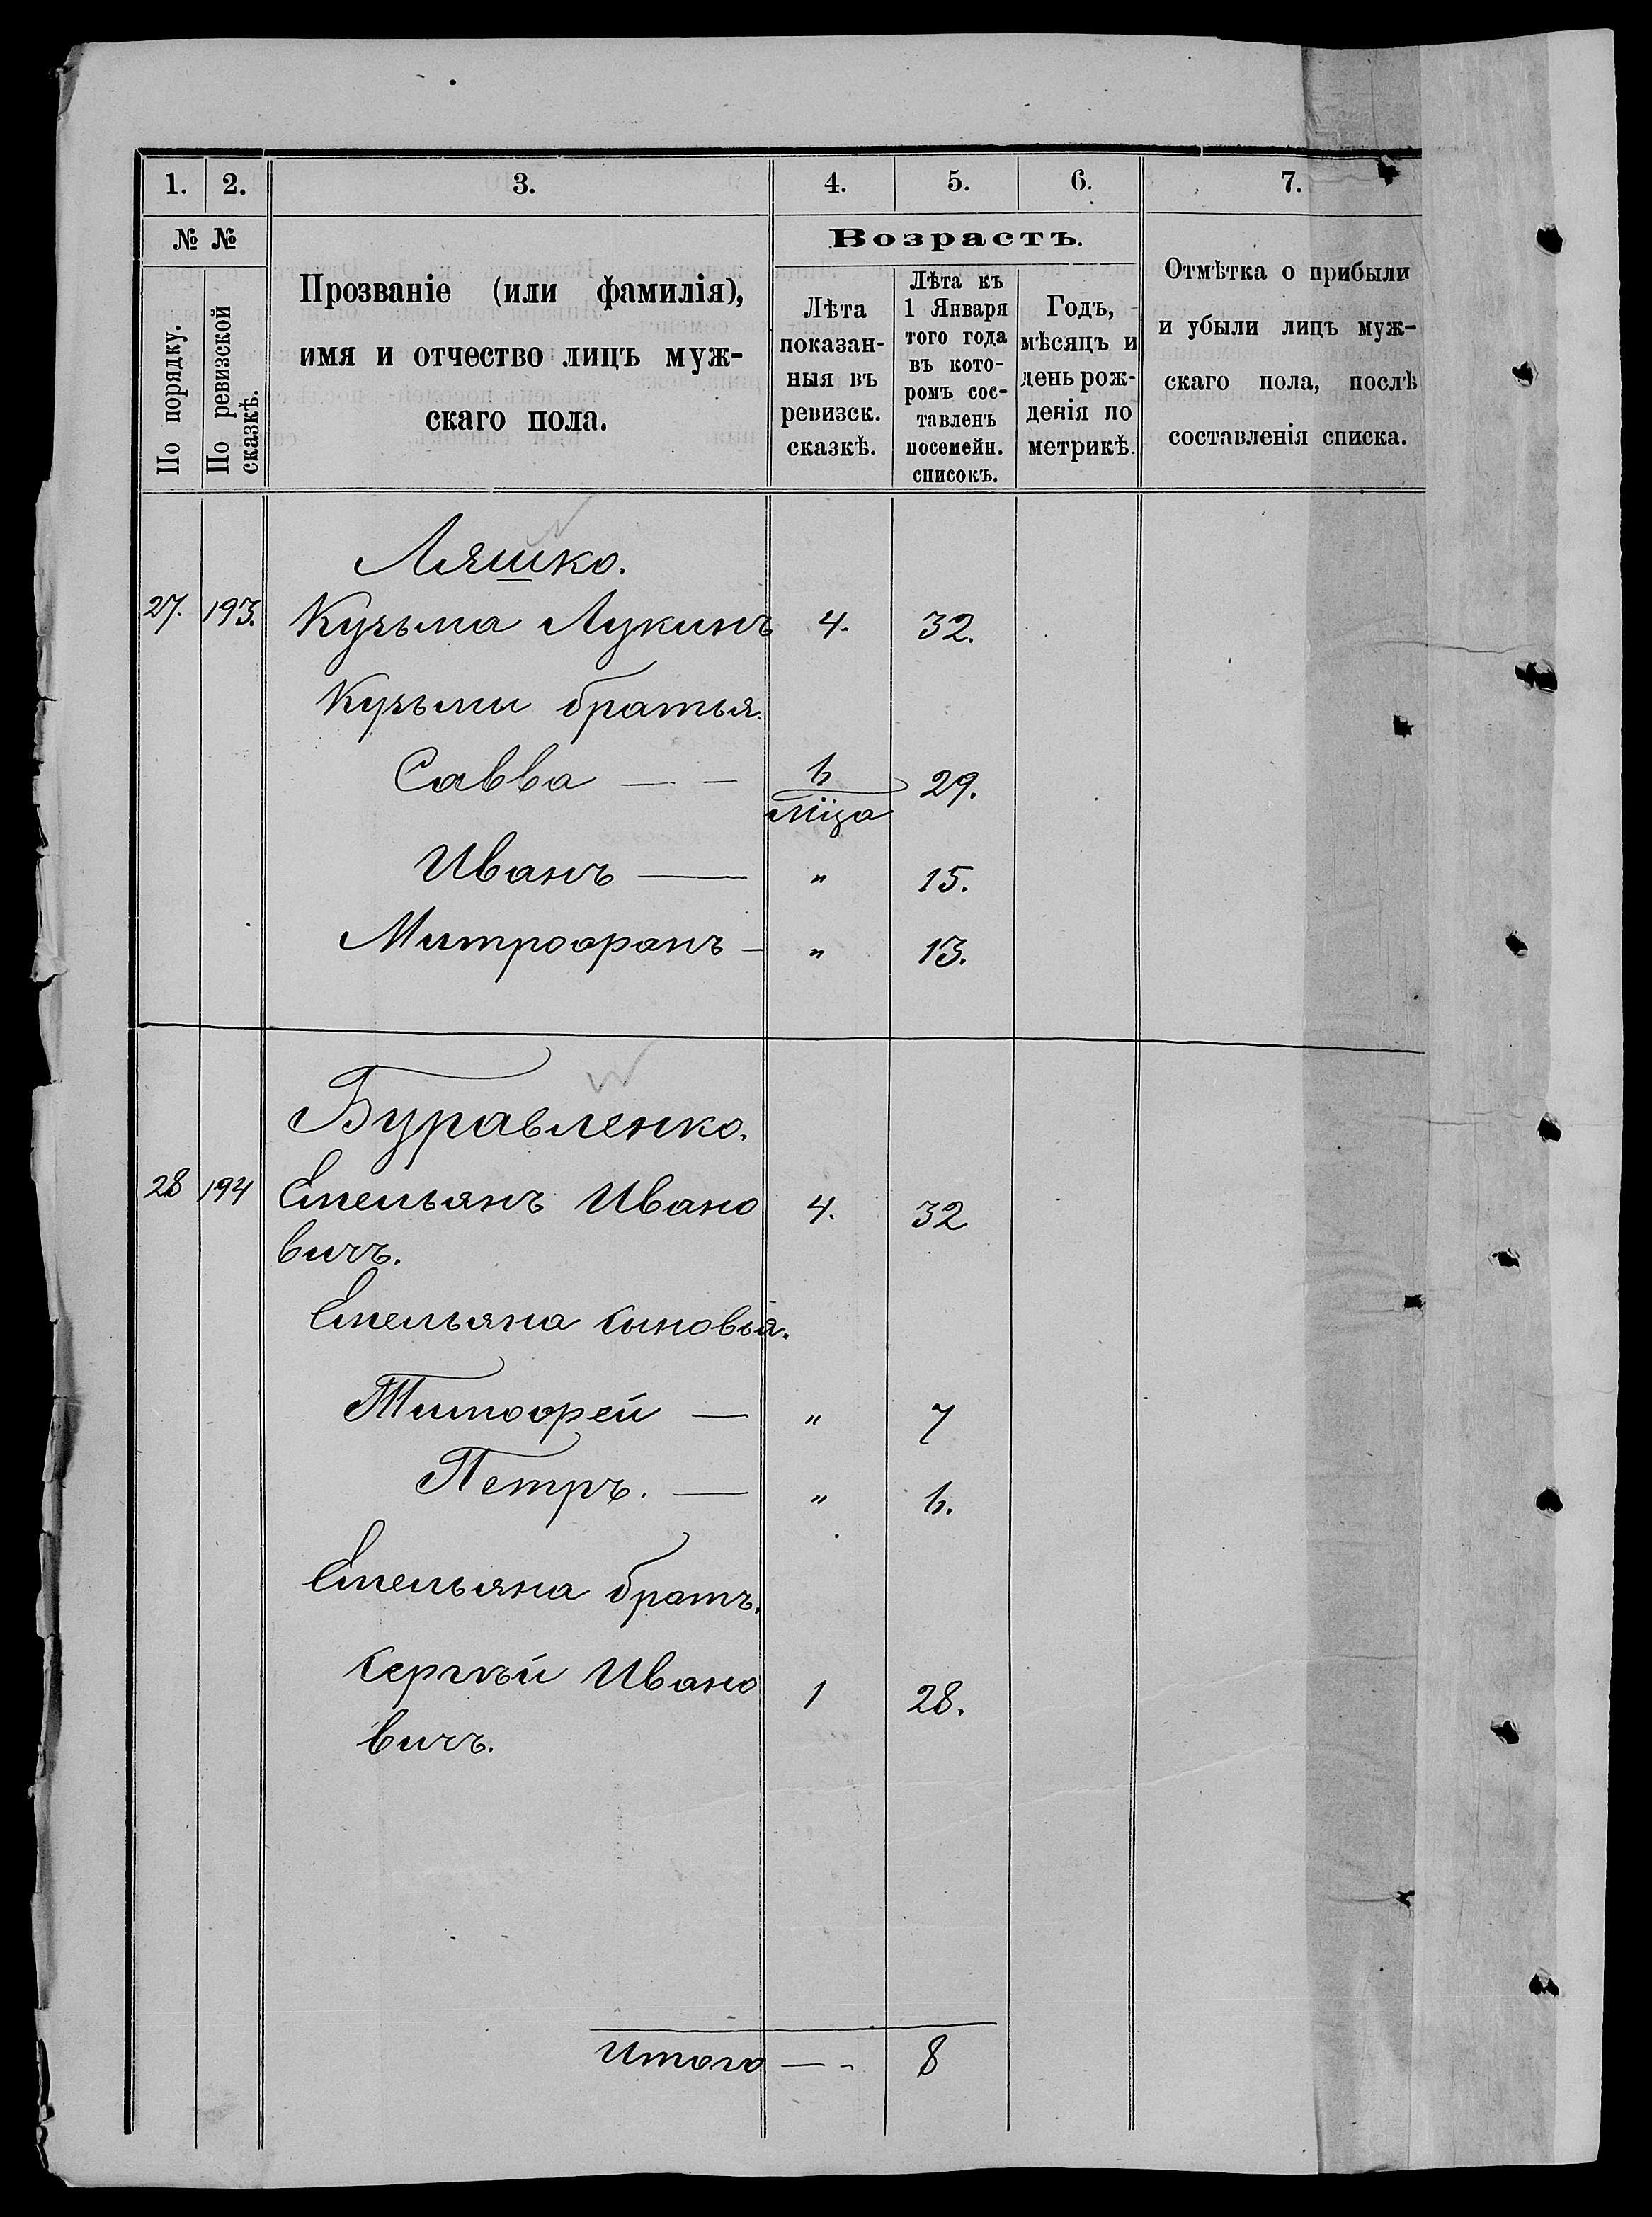 1. 2. 3. 4. 5. 6. 7.
№ №
По порядку.
По ревизской сказкѣ.
Прозваніе (или фамилія),
имя и отчество лицъ муж-
скаго пола.
Возрастъ.
Лѣта
показан-
ныя въ
ревизск.
сказкѣ.
Лѣта къ
1 Января
того года
въ кото-
ромъ сос-
тавленъ
посемейн.
списокъ.
Годъ,
мѣсяцъ и
день рож-
денія по
метрикѣ.
Отмѣтка о прибыли
и убыли лицъ муж-
скаго пола, послѣ
составленія списка.
Ляшко.
27. 193. Кузьма Лукинъ 4. 32.
Кузьмы братья.
Савва — — 6/мѣца 29.
Иванъ — " 15.
Митрофанъ — " 13.
Буравленко.
28 194 Емельянъ Ивано 4. 32
вичъ.
Емельяна сыновья.
Тимофей — " 7
Петръ. — " 6.
Емельяна братъ.
Сергѣй Ивано 1 28.
вичъ.
Итого — - 8